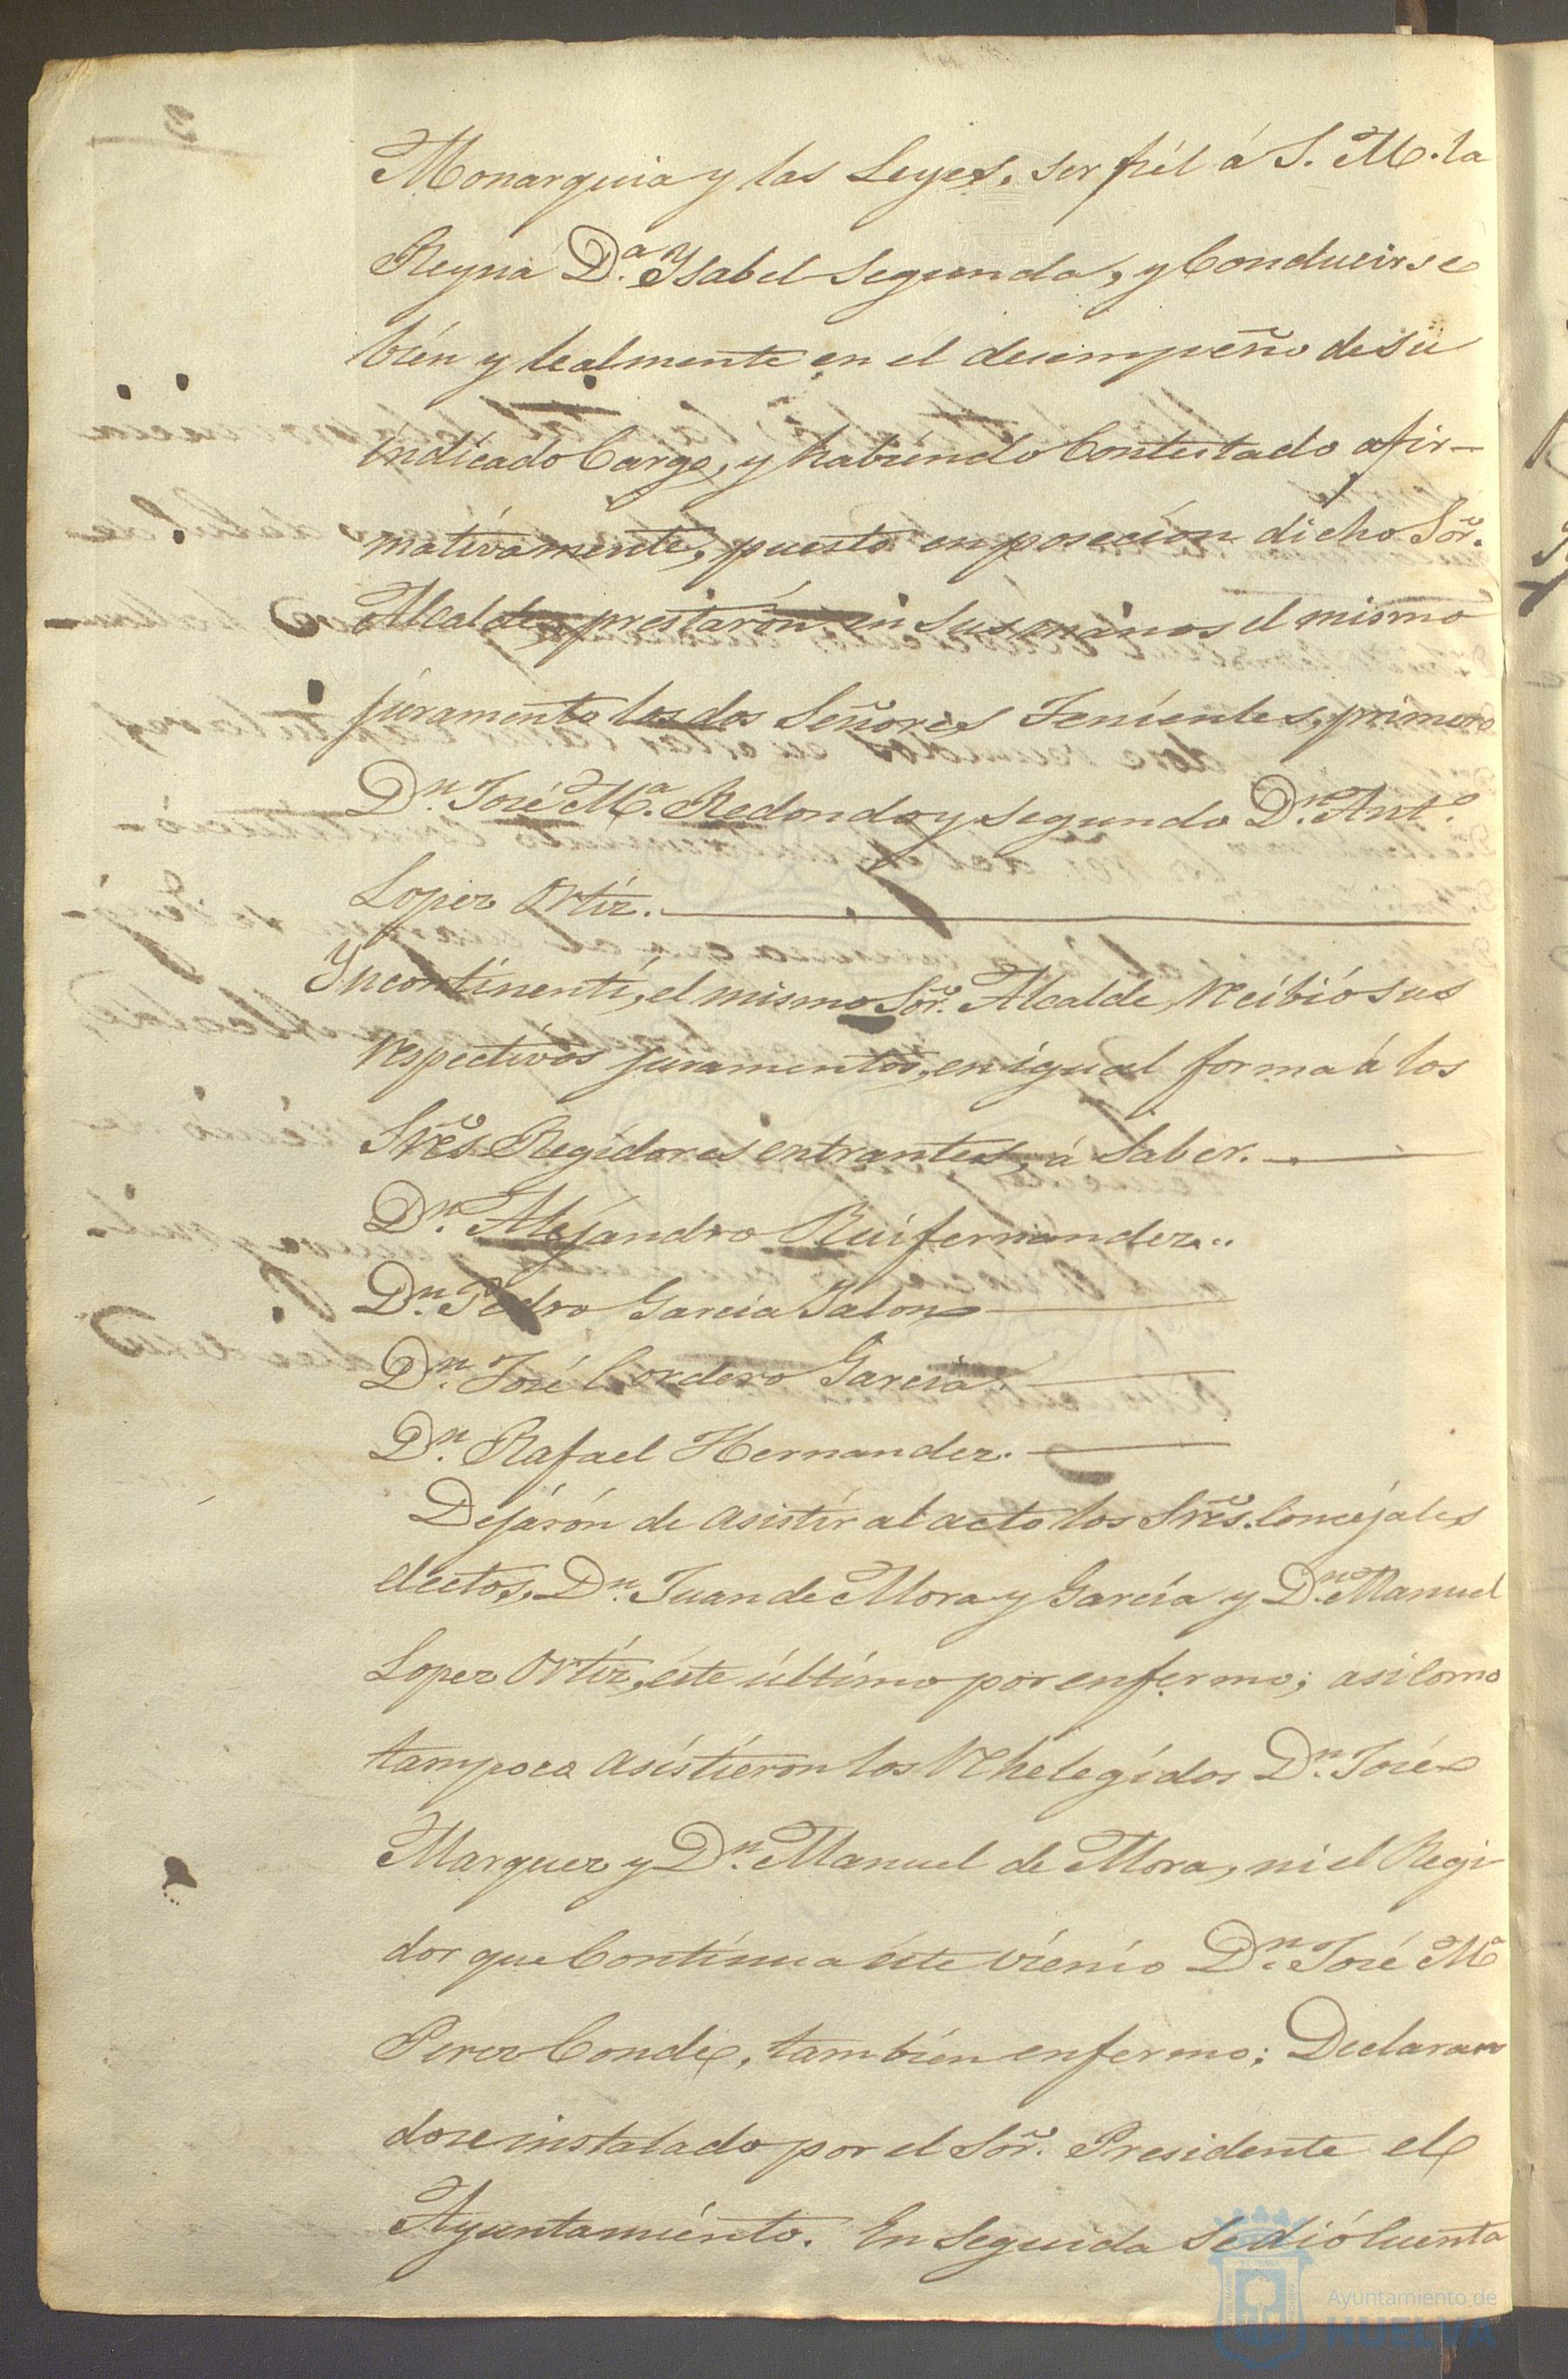 Monarquia y las Leyes, ser fiél á S. M. la
Reyna D.ª Ysabel Segunda, y Conducirse
bién y lealmente en el desempeño de su
indicado Cargo, y habiéndo Contestado afir-
mativamente, puesto en posecion dicho Sõr.
Alcalde, prestarón en sus manos el mismo
juramento los dos Señores Tenientes, primero
D.n José M.ª Redondo y segundo D.n Ant.º
Lopez Ortiz.
Yncontinenti, el mismo Sõr. Alcalde, recibió sus
respectivos juramentos, en igual forma á los
Sres. Regidores entrantes, á Saber.
D.n Alejandro Ruifernandez..
D.n Pedro Garcia Jalon
D.n José Cordero Garcia.
D.n Rafael Hernandez.
Dejarón de asistir al acto los Sres. Concejales
electos, D.n Juan de Mora y Garcia y D.n Manuel
Lopez Ortiz, este último por enfermo; asi como
tampoco asistieron los rehelegidos D.n José
Marquez y D.n Manuel de Mora, ni el Regi-
dor que Continua éste viénio D.n José M.ª
Perez Conde, tambien enfermo; Declaran
dose instalado por el Sõr. Presidente el
Ayuntamiénto. En Seguida se dió Cuenta
Ayuntamiento de
HUELVA